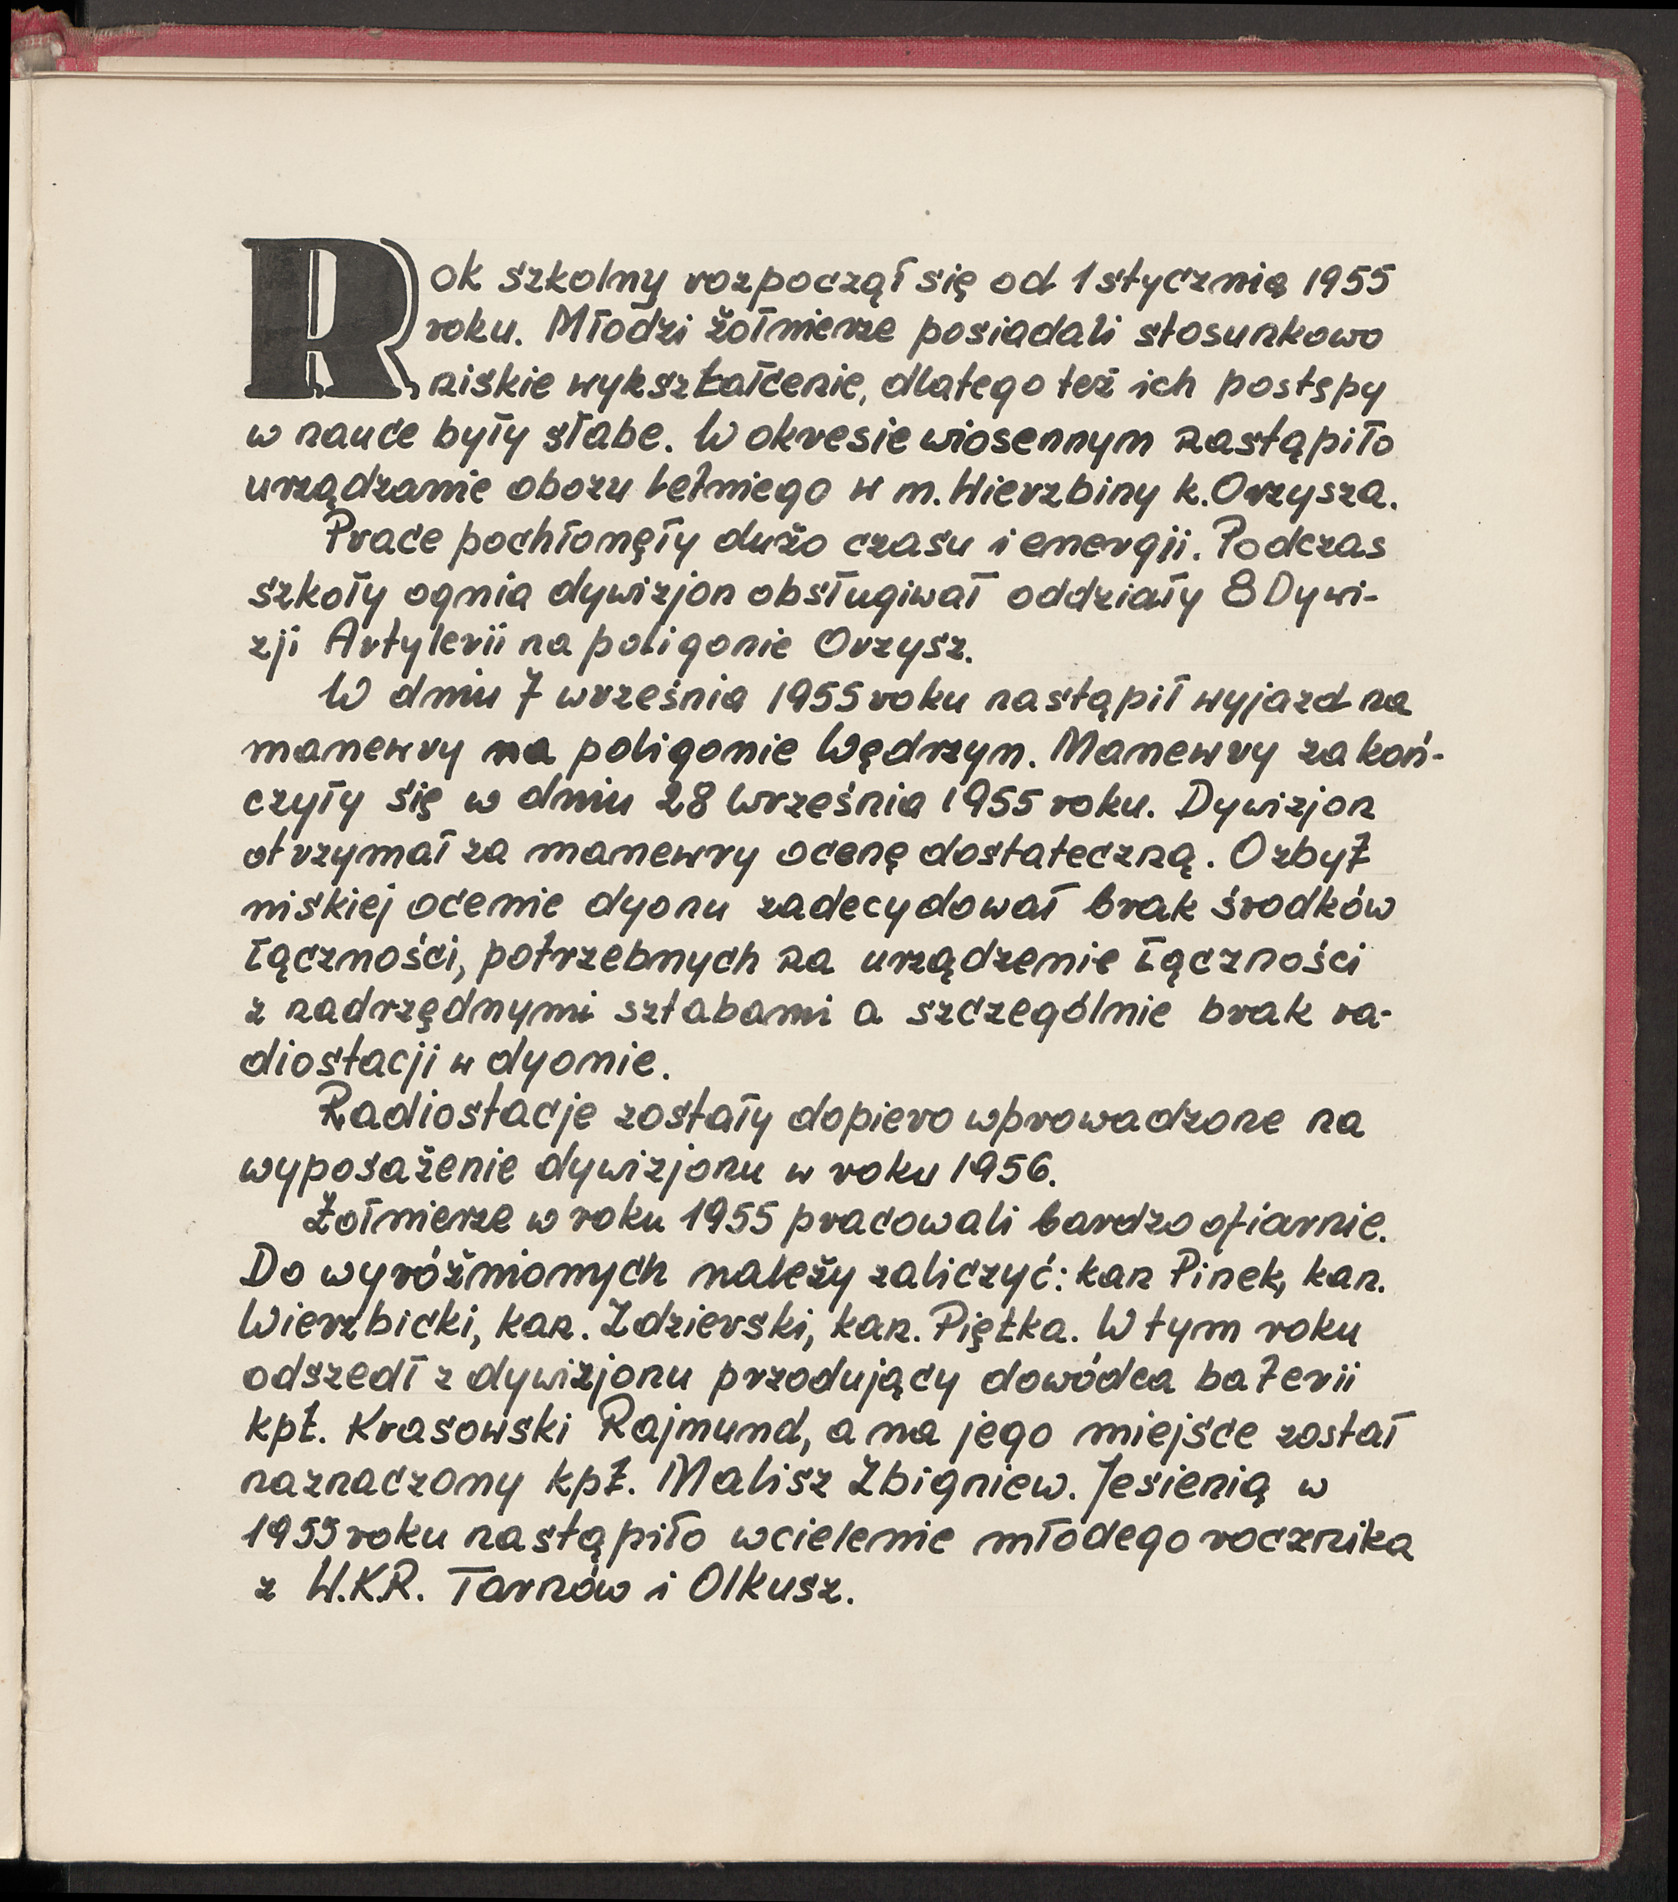 Rok szkolny rozpoczął się od 1 stycznia 1955
roku. Młodzi żołnierze posiadali stosunkowo
niskie wykształcenie, dlatego też ich postępy
w nauce były słabe. W okresie wiosennym nastąpiło
urządzanie obozu letniego w m. Wierzbiny k. Orzysza.
Prace pochłonęły dużo czasu i energii. Podczas
szkoły ognia dywizjon obsługiwał oddziały 8 Dywi-
zji Artylerii na poligonie Orzysz.
W dniu 7 września 1955 roku nastąpił wyjazd na
manewry na poligonie Wędrzyn. Manewry zakoń-
czyły się w dniu 28 września 1955 roku. Dywizjon
otrzymał za manewry ocenę dostateczną. O zbyt
niskiej ocenie dyonu zadecydował brak środków
łączności, potrzebnych na urządzenie łączności
z nadrzędnymi sztabami a szczególnie brak ra-
diostacji w dyonie.
Radiostacje zostały dopiero wprowadzone na
wyposażenie dywizjonu w roku 1956.
Żołnierze w roku 1955 pracowali bardzo ofiarnie.
Do wyróżnionych należy zaliczyć: kan Pinek, kan.
Wierzbicki, kan. Zdzierski, kan. Piętka. W tym roku
odszedł z dywizjonu przodujący dowódca baterii
kpt. Krasowski Rajmund, a na jego miejsce został
naznaczony kpt. Malisz Zbigniew. Jesienią w
1955 roku nastąpiło wcielenie młodego rocznika
z W.K.R. Tarnów i Olkusz.